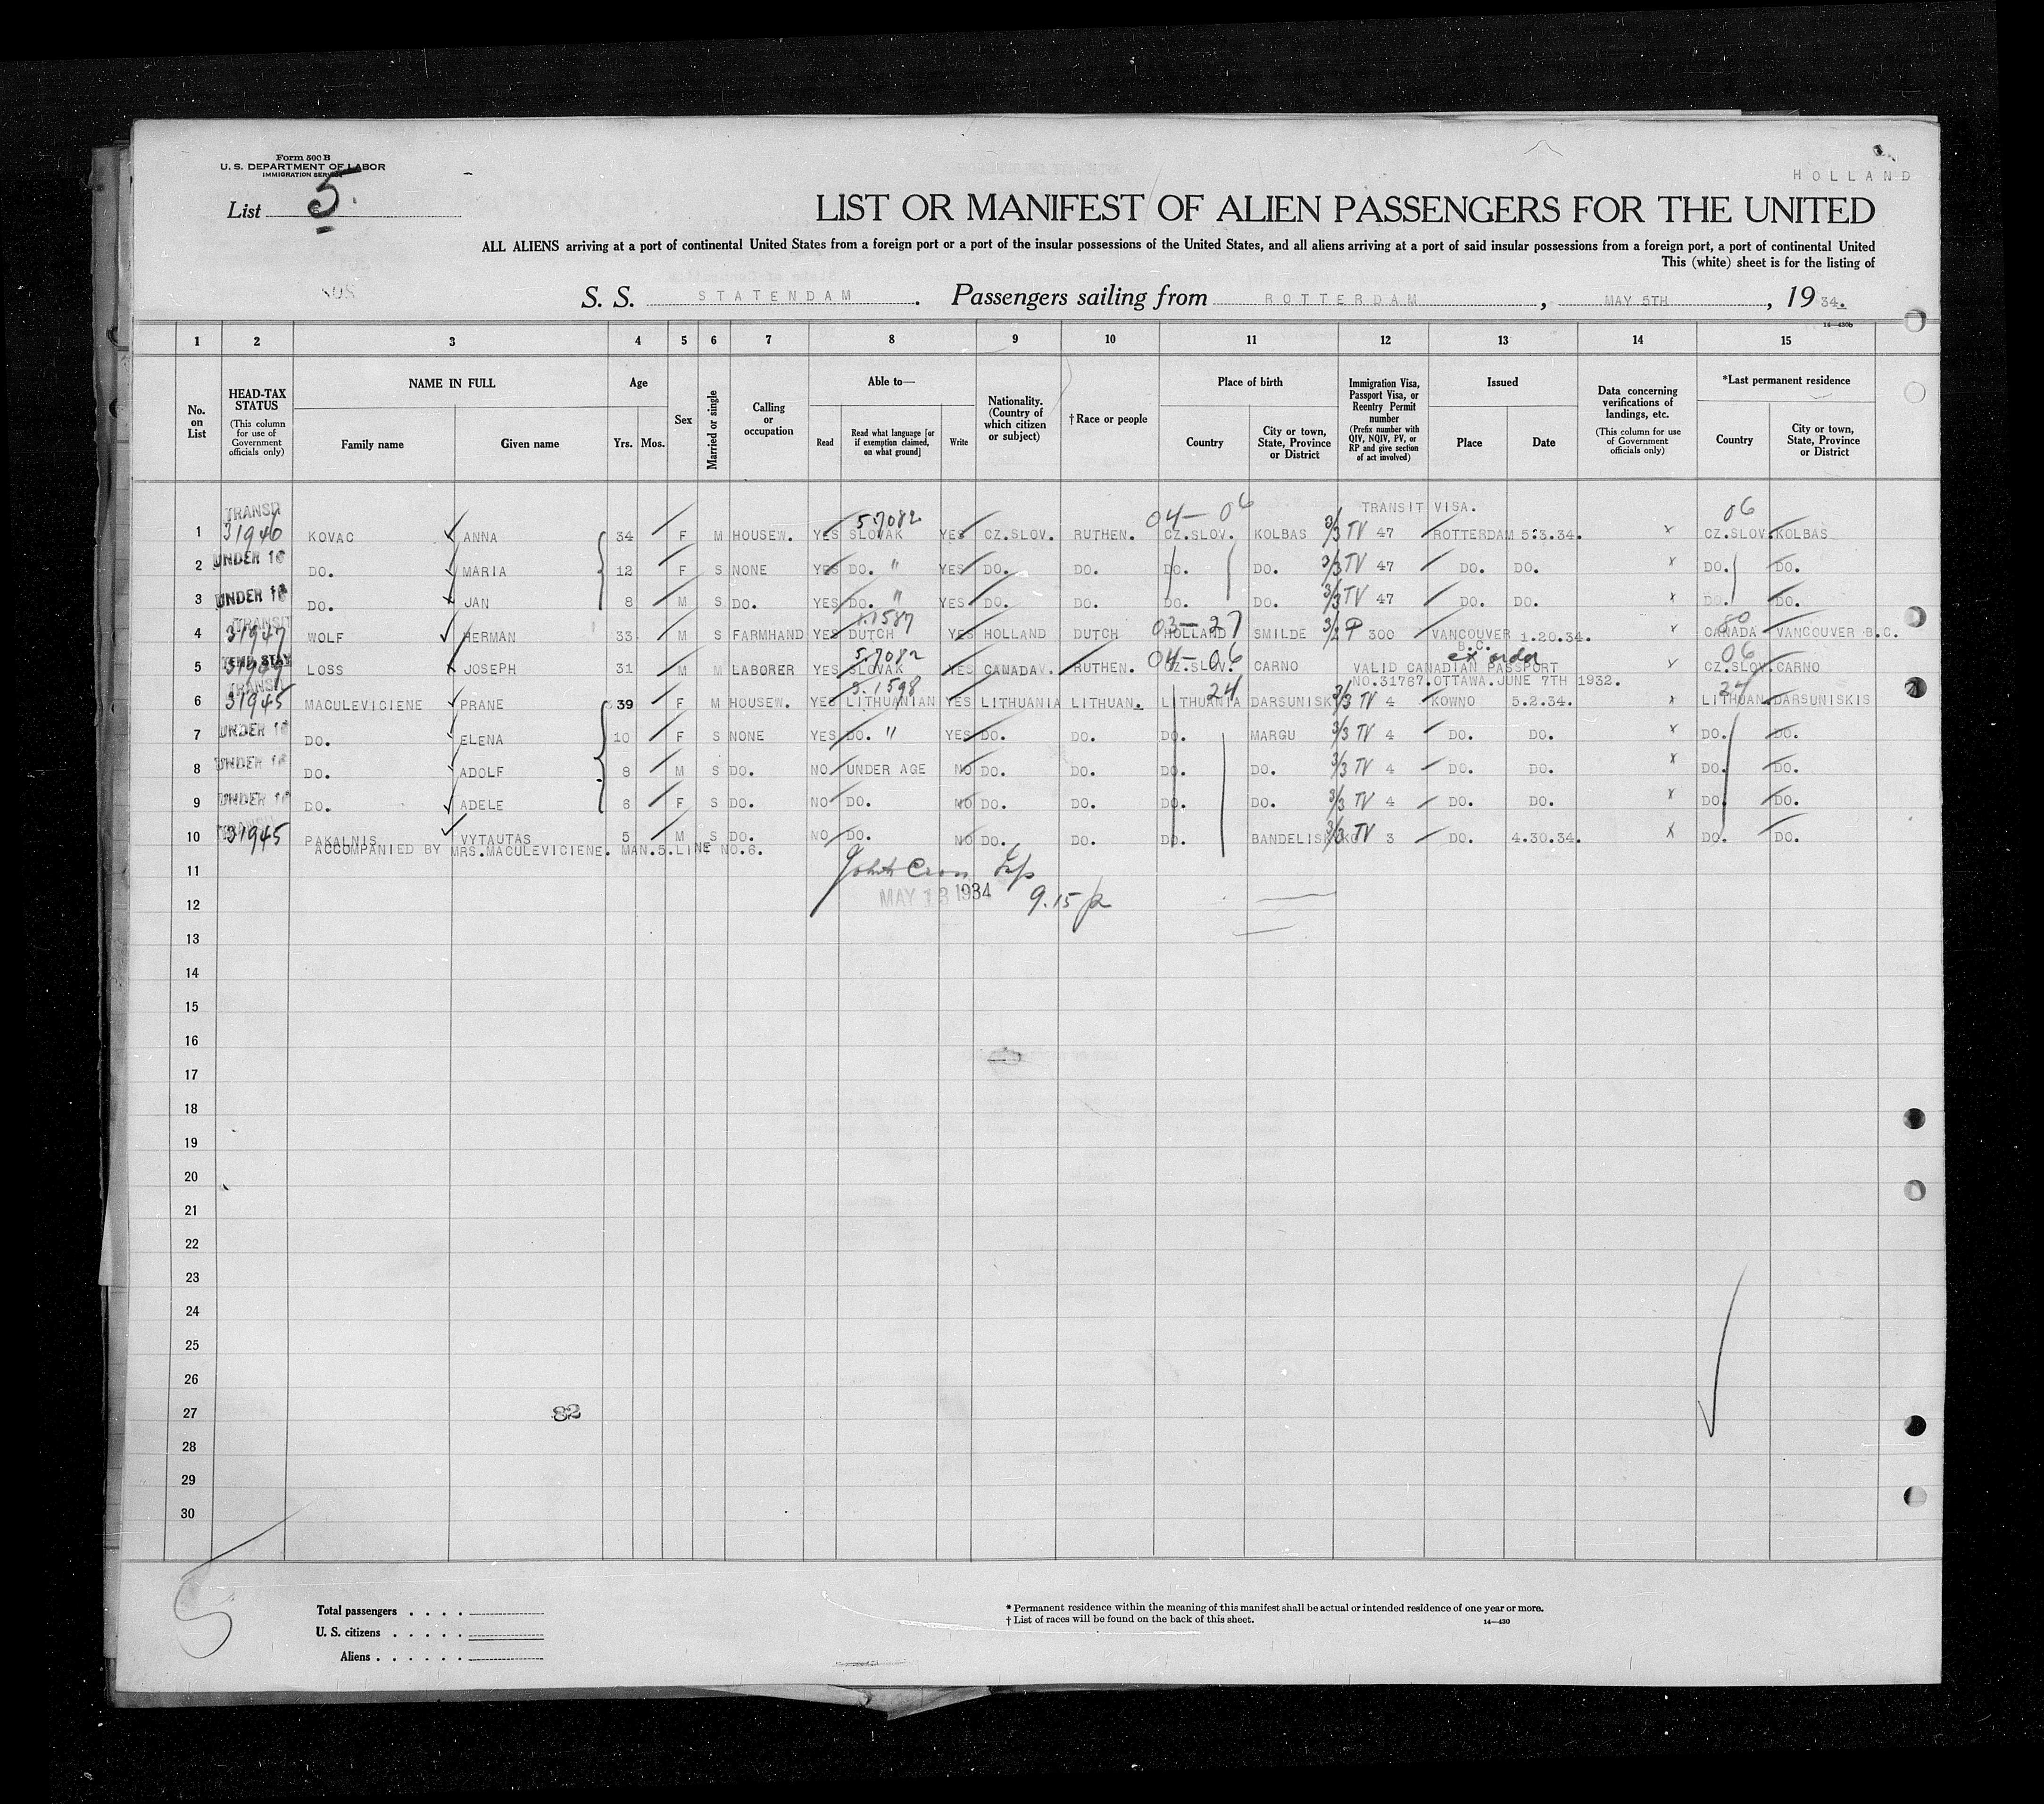 Form 500 B
U. S. DEPARTMENT OF LABOR
IMMIGRATION SERVICE
HOLLAND
List 5.
LIST OR MANIFEST OF ALIEN PASSENGERS FOR THE UNITED
ALL ALIENS arriving at a port of continental United States from a foreign port or a port of the insular possessions of the United States, and all aliens arriving at a port of said insular possessions from a foreign port, a port of continental United
This (white) sheet is for the listing of
S. S. STATENDAM. Passengers sailing from ROTTERDAM, MAY 5TH, 19 34.
14—430b
1 2 3 4 5 6 7 8 9 10 11 12 13 14 15
No. on List
HEAD-TAX STATUS (This column for use of Government officials only)
NAME IN FULL Family name Given name
Age Yrs. Mos.
Sex
Married or single
Calling or occupation
Able to— Read Read what language [or if exemption claimed, on what ground] Write
Nationality. (Country of which citizen or subject)
†Race or people
Place of birth Country City or town, State, Province or District
Immigration Visa, Passport Visa, or Reentry Permit number (Prefix number with QIV, NQIV, PV, or RP and give section of act involved)
Issued Place Date
Data concerning verifications of landings, etc. (This column for use of Government officials only)
*Last permanent residence Country City or town, State, Province or District
TRANSIT 57082 04—06 TRANSIT VISA. 06
1 31946 KOVAC ANNA 34 F M HOUSEW. YES SLOVAK YES CZ.SLOV. RUTHEN. CZ.SLOV. KOLBAS 3/3 TV 47 ROTTERDAM 5.3.34. CZ.SLOV. KOLBAS
2 UNDER 16 DO. MARIA 12 F S NONE YES DO. " YES DO. DO. DO. DO. 3/3 TV 47 DO. DO. DO. DO.
3 UNDER 16 DO. JAN 8 M S DO. YES DO. " YES DO. DO. DO. DO. 3/3 TV 47 DO. DO. DO. DO.
TRANSIT 1.1587 03—27 80
4 31947 WOLF HERMAN 33 M S FARMHAND YES DUTCH YES HOLLAND DUTCH HOLLAND SMILDE P 300 VANCOUVER 1.20.34. CANADA VANCOUVER B.C.
B.C.
TEMP STAY 5.7082 04—06 ex order 06
5 LOSS JOSEPH 31 M M LABORER YES SLOVAK YES CANADA RUTHEN. CZ.SLOV. CARNO VALID CANADIAN PASSPORT CZ.SLOV. CARNO
NO.31787.OTTAWA.JUNE 7TH 1932.
TRANSIT 3.1598 24 24
6 31945 MACULEVICIENE PRANE 39 F M HOUSEW. YES LITHUANIAN YES LITHUANIA LITHUAN. LITHUANIA DARSUNISK 3/3 TV 4 KOWNO 5.2.34. LITHUAN. DARSUNISKIS
7 UNDER 16 DO. ELENA 10 F S NONE YES DO. " YES DO. DO. DO. MARGU 3/3 TV 4 DO. DO. DO. DO.
8 UNDER 16 DO. ADOLF 8 M S DO. NO UNDER AGE NO DO. DO. DO. DO. 3/3 TV 4 DO. DO. DO. DO.
9 UNDER 16 DO. ADELE 6 F S DO. NO DO. NO DO. DO. DO. DO. 3/3 TV 4 DO. DO. DO. DO.
TRANSIT
10 31945 PAKALNIS VYTAUTAS 5 M S DO. NO DO. NO DO. DO. DO. 3/3 TV 3 DO. 4.30.34. DO. DO.
ACCOMPANIED BY MRS.MACULEVICIENE. MAN.5.LINE NO.6.
11
MAY 13 1934 9.15 p
12
13
14
15
16
17
18
19
20
21
22
23
24
25
26
27 82
28
29
30
5
Total passengers . . . .
U. S. citizens . . . . .
Aliens . . . . . .
* Permanent residence within the meaning of this manifest shall be actual or intended residence of one year or more.
† List of races will be found on the back of this sheet.
14—430